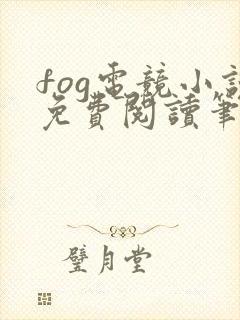 fog電競小說
免費閱讀筆
璧月堂